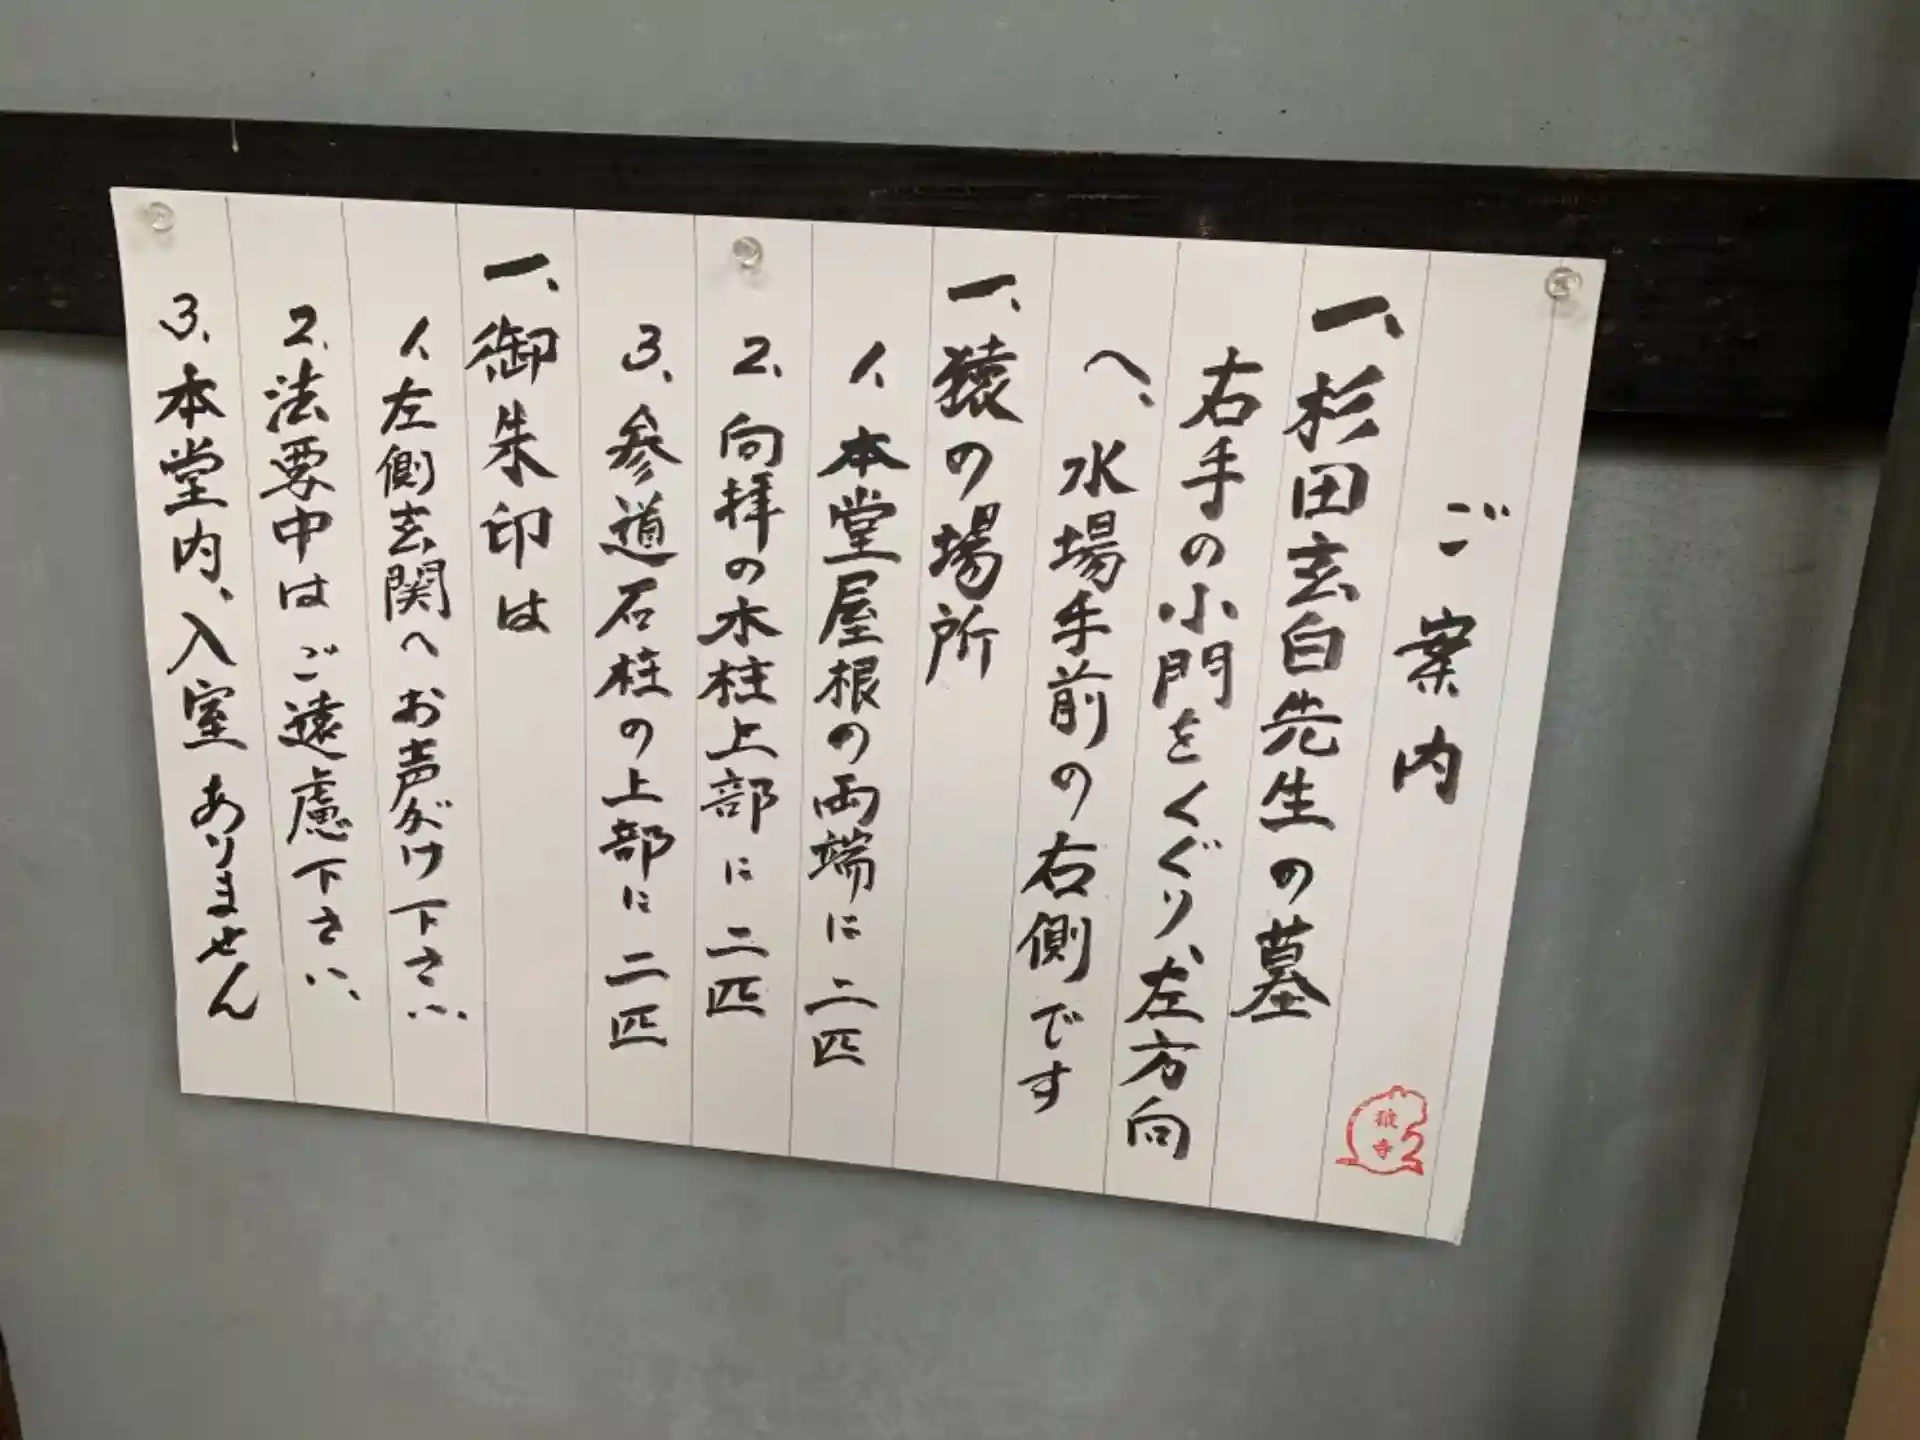 ご案内
一、杉田玄白先生の墓
右手の小門をくぐり、左方向
へ、水場手前の右側です
一、猿の場所
1、本堂屋根の両端に二匹
2、向拝の木柱上部に二匹
3、参道石柱の上部に二匹
一、御朱印は
1、左側玄関へお声がけ下さい、
2、法要中はご遠慮下さい、
3、本堂内、入室ありません
猿寺